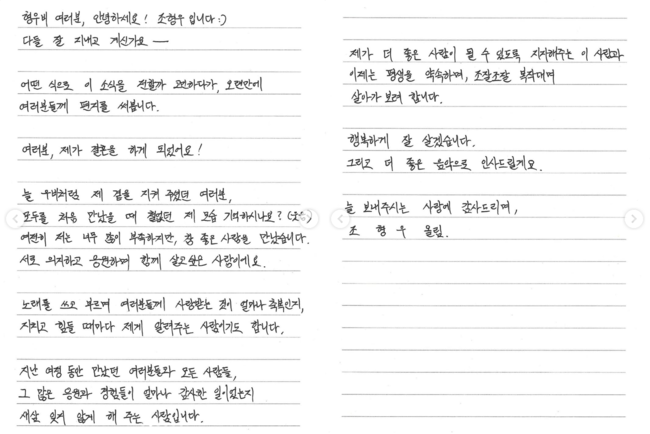 형우비 여러분, 안녕하세요! 조형우 입니다 :)
다들 잘 지내고 계신가요 —
어떤 식으로 이 소식을 전할까 고민하다가, 오랜만에
여러분들께 편지를 써봅니다.
여러분, 제가 결혼을 하게 되었어요!
늘 우박처럼 제 곁을 지켜 주셨던 여러분,
모두를 처음 만났을 때 철없던 제 모습 기억하시나요? (웃음)
여전히 저는 너무 많이 부족하지만, 참 좋은 사람을 만났습니다.
서로 의지하고 응원하며 함께 살고싶은 사람이에요.
노래를 쓰고 부르며 여러분들께 사랑받는 것이 얼마나 축복인지,
지치고 힘들 때마다 제게 알려주는 사람이기도 합니다.
지난 여정 동안 만났던 여러분들과 모든 사람들,
그 많은 응원과 경험들이 얼마나 감사한 일이었는지
새삼 잊지 않게 해 주는 사람입니다.
제가 더 좋은 사람이 될 수 있도록 지지해주는 이 사람과
이제는 평생을 약속하며, 조잘조잘 복작대며
살아가 보려 합니다.
행복하게 잘 살겠습니다.
그리고 더 좋은 음악으로 인사드릴게요.
늘 보내주시는 사랑에 감사드리며,
조 형 우 올림.